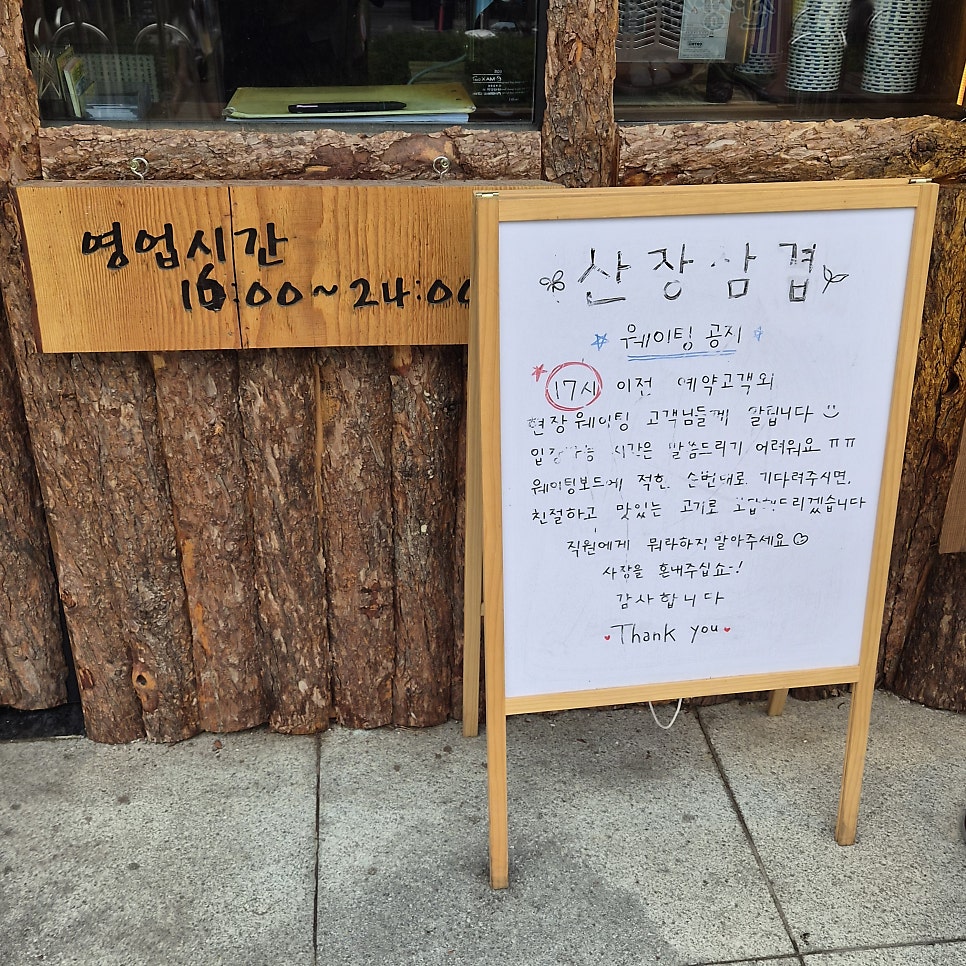 영업시간
16:00~24:00
산장삼겹
웨이팅 공지
17시 이전 예약고객외
현장웨이팅 고객님들께 알립니다
입장가능 시간은 말씀드리기 어려워요 ㅠㅠ
웨이팅보드에 적힌 순번대로 기다려주시면,
친절하고 맛있는 고기로 보답해드리겠습니다
직원에게 뭐라하지 말아주세요
사장을 혼내주십쇼-!
감사합니다
Thank you